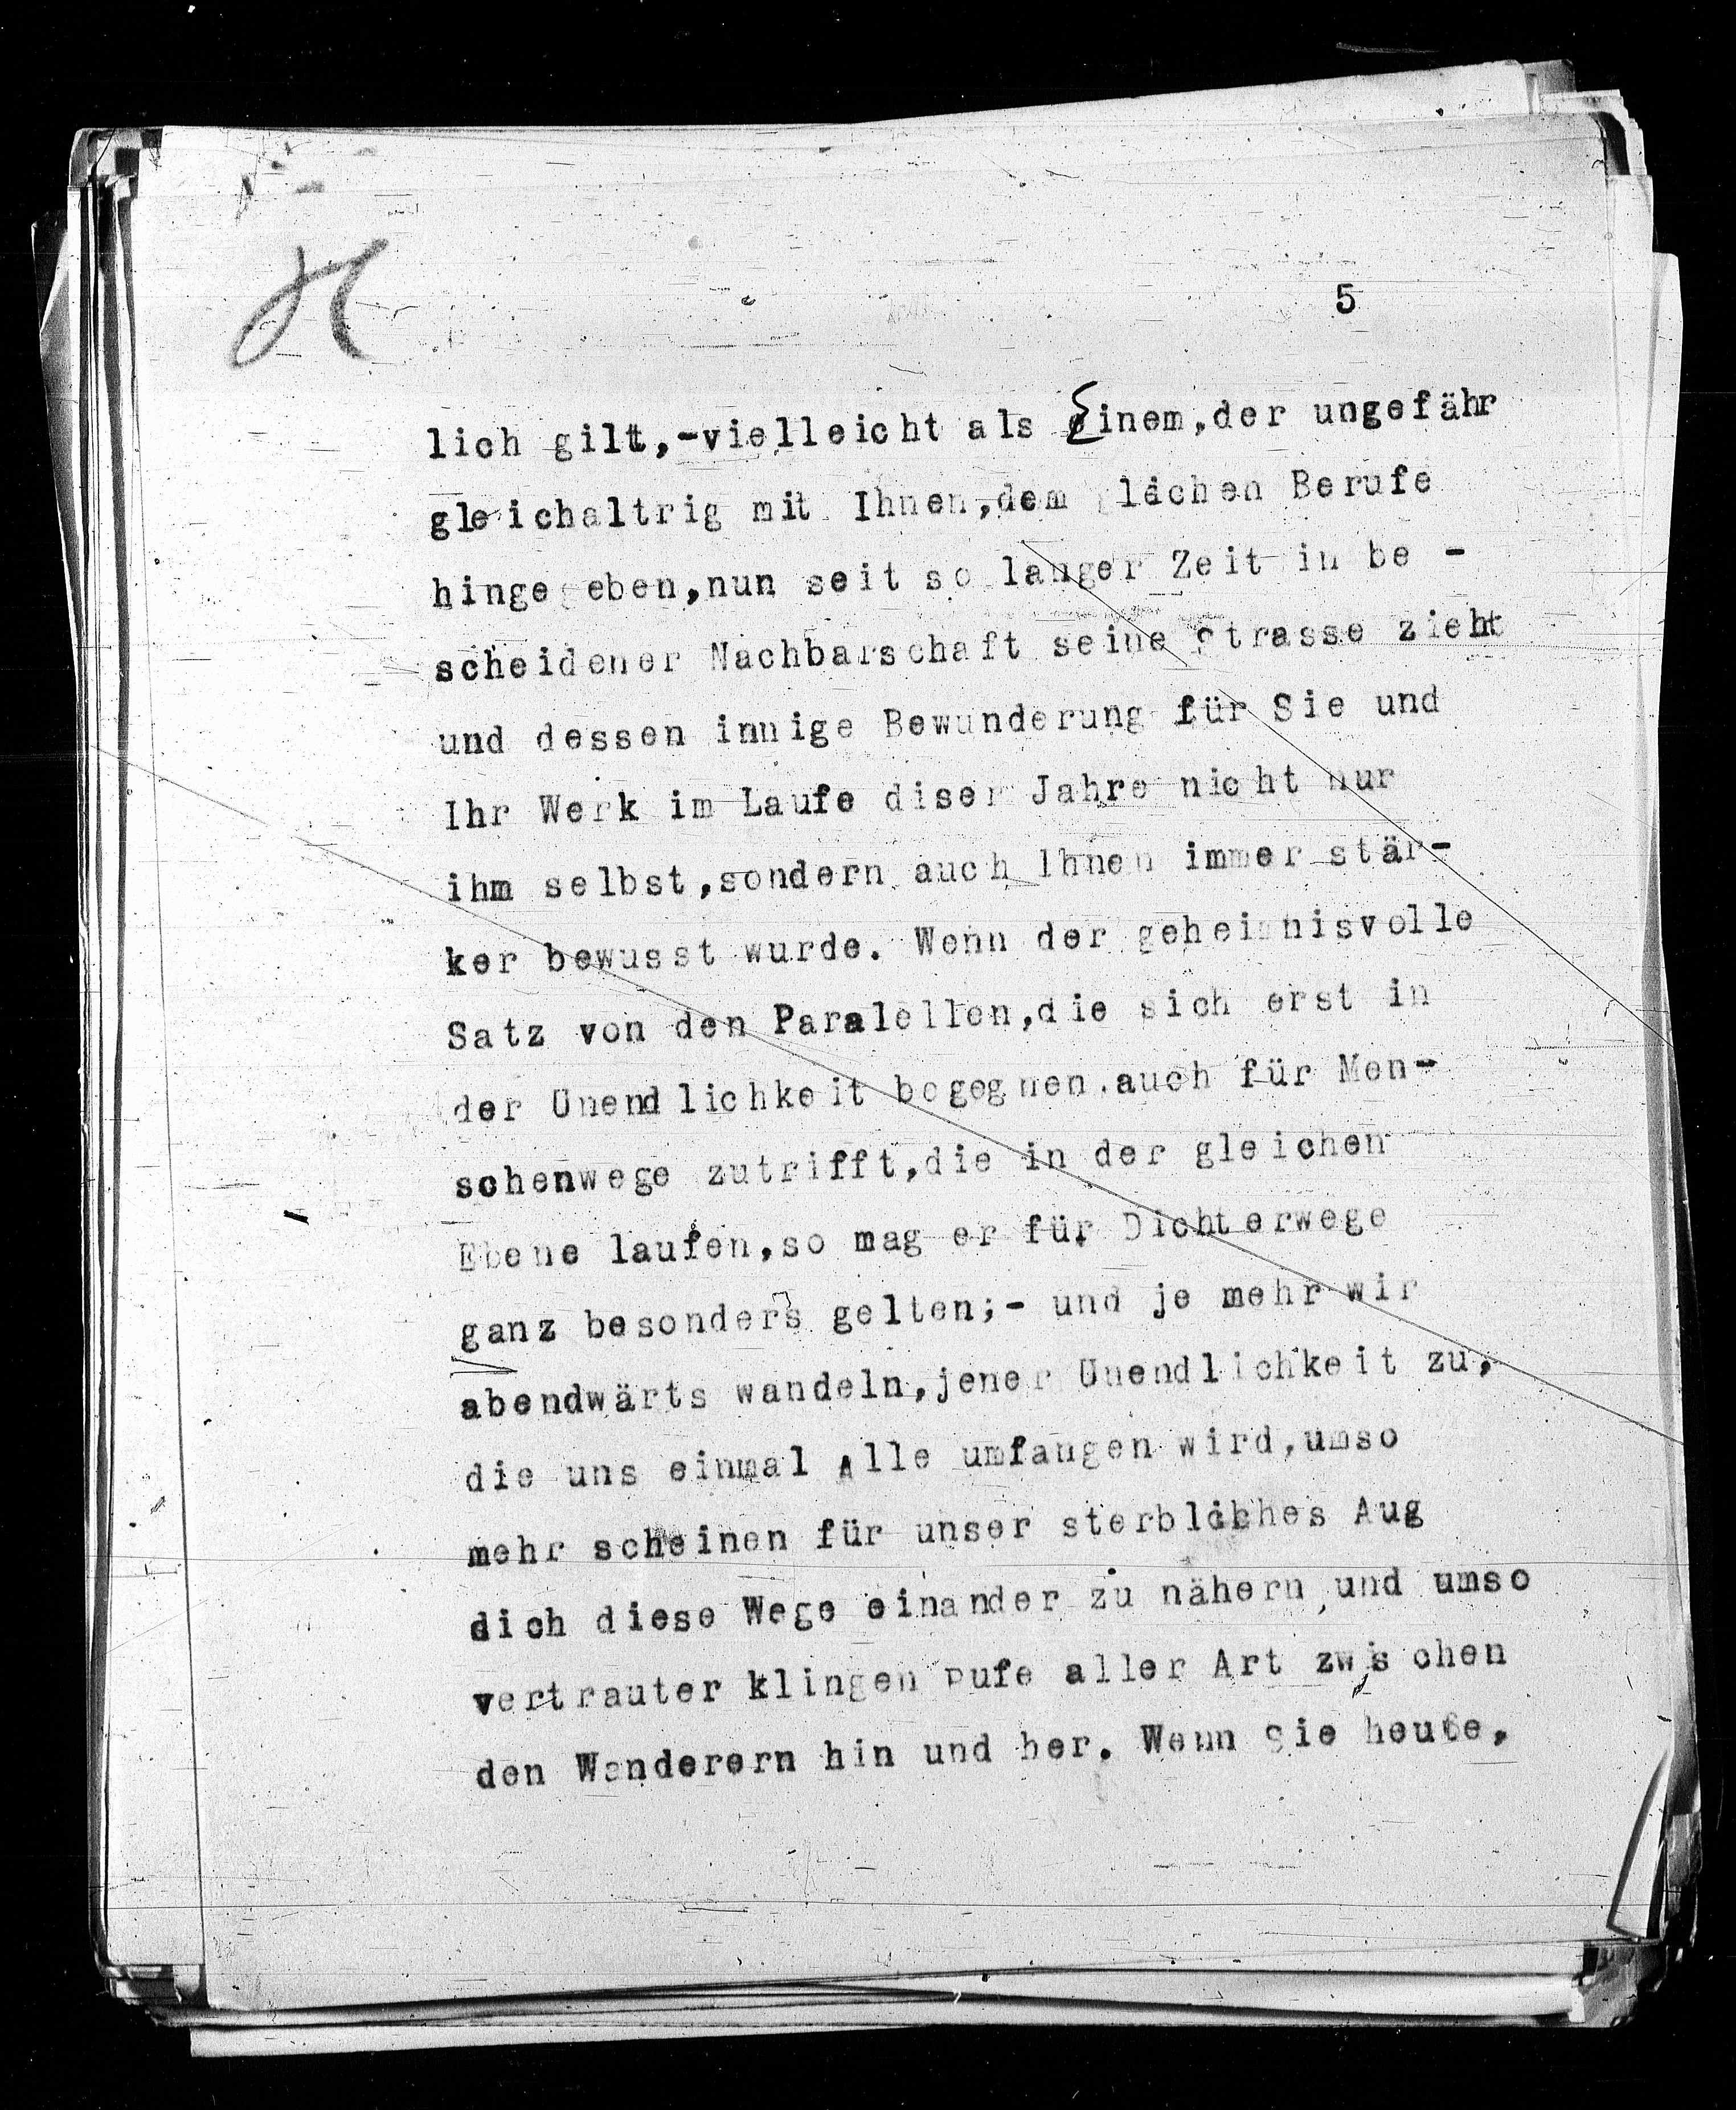 5
lich gilt,-vielleicht als Einem,der ungefähr
gleichaltrig mit Ihnen,dem glächen Berufe
hingegeben,nun seit so langer Zeit in be -
scheidener Nachbarschaft seine Strasse zieht
und dessen innige Bewunderung für Sie und
Ihr Werk im Laufe diser Jahre nicht nur
ihm selbst,sondern auch Ihnen immer stär-
ker bewusst wurde. Wenn der geheimnisvolle
Satz von den Paralellen,die sich erst in
der Unendlichkeit begegnen,auch für Men-
schenwege zutrifft,die in der gleichen
Ebene laufen,so mag er für Dichterwege
ganz besonders gelten;- und je mehr wir
abendwärts wandeln,jener Unendlichkeit zu,
die uns einmal Alle umfangen wird,umso
mehr scheinen für unser sterbliches Aug
dich diese Wege einander zu nähern,und umso
vertrauter klingen Rufe aller Art zwischen
den Wanderern hin und her. Wenn Sie heute,